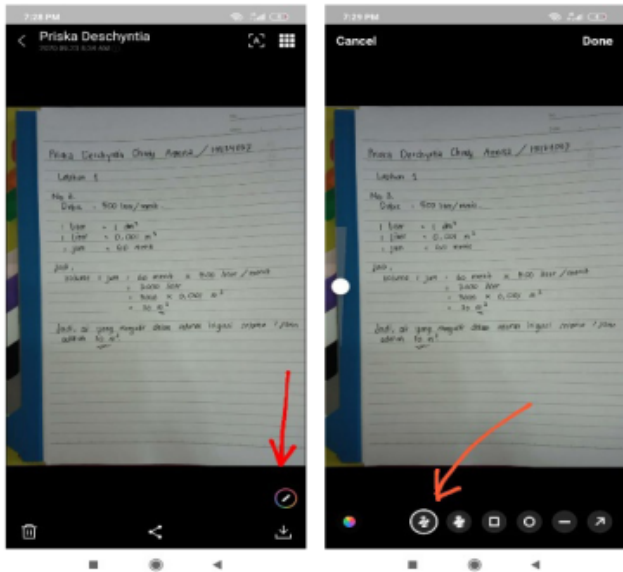 7:28 PM
Priska Deschyntia
Priska Deschyntia
Latihan 1
Debit : 500 liter/menit
1 liter = 1 dm³
1 liter = 0,001 m³
1 jam = 60 menit
Jadi,
Volume 1 jam : 60 menit × 500 liter/menit
× 0,001 m³
= 30 m³
Jadi, air yang mengalir dalam saluran irigasi selama 1 jam
adalah 30 m³
7:29 PM
Cancel
Done
Priska Deschyntia
Latihan 1
Debit : 500 liter/menit
1 liter = 1 dm³
1 liter = 0,001 m³
1 jam = 60 menit
Jadi,
Volume 1 jam : 60 menit × 500 liter/menit
× 0,001 m³
= 30 m³
Jadi, air yang mengalir dalam saluran irigasi selama 1 jam
adalah 30 m³